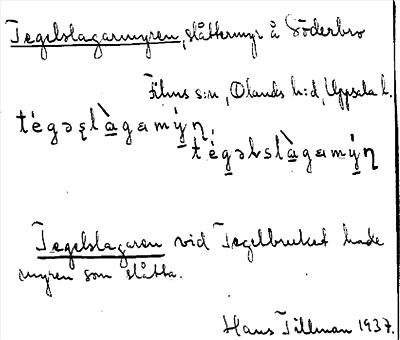 Tegelslagarmyren, slåttermyr å Söderbro
Films s:n, Olands h:d, Uppsala l.
Tegelslagaren vid Tegelbruket hade
myren som slåtta.
Hans Tillman 1937.